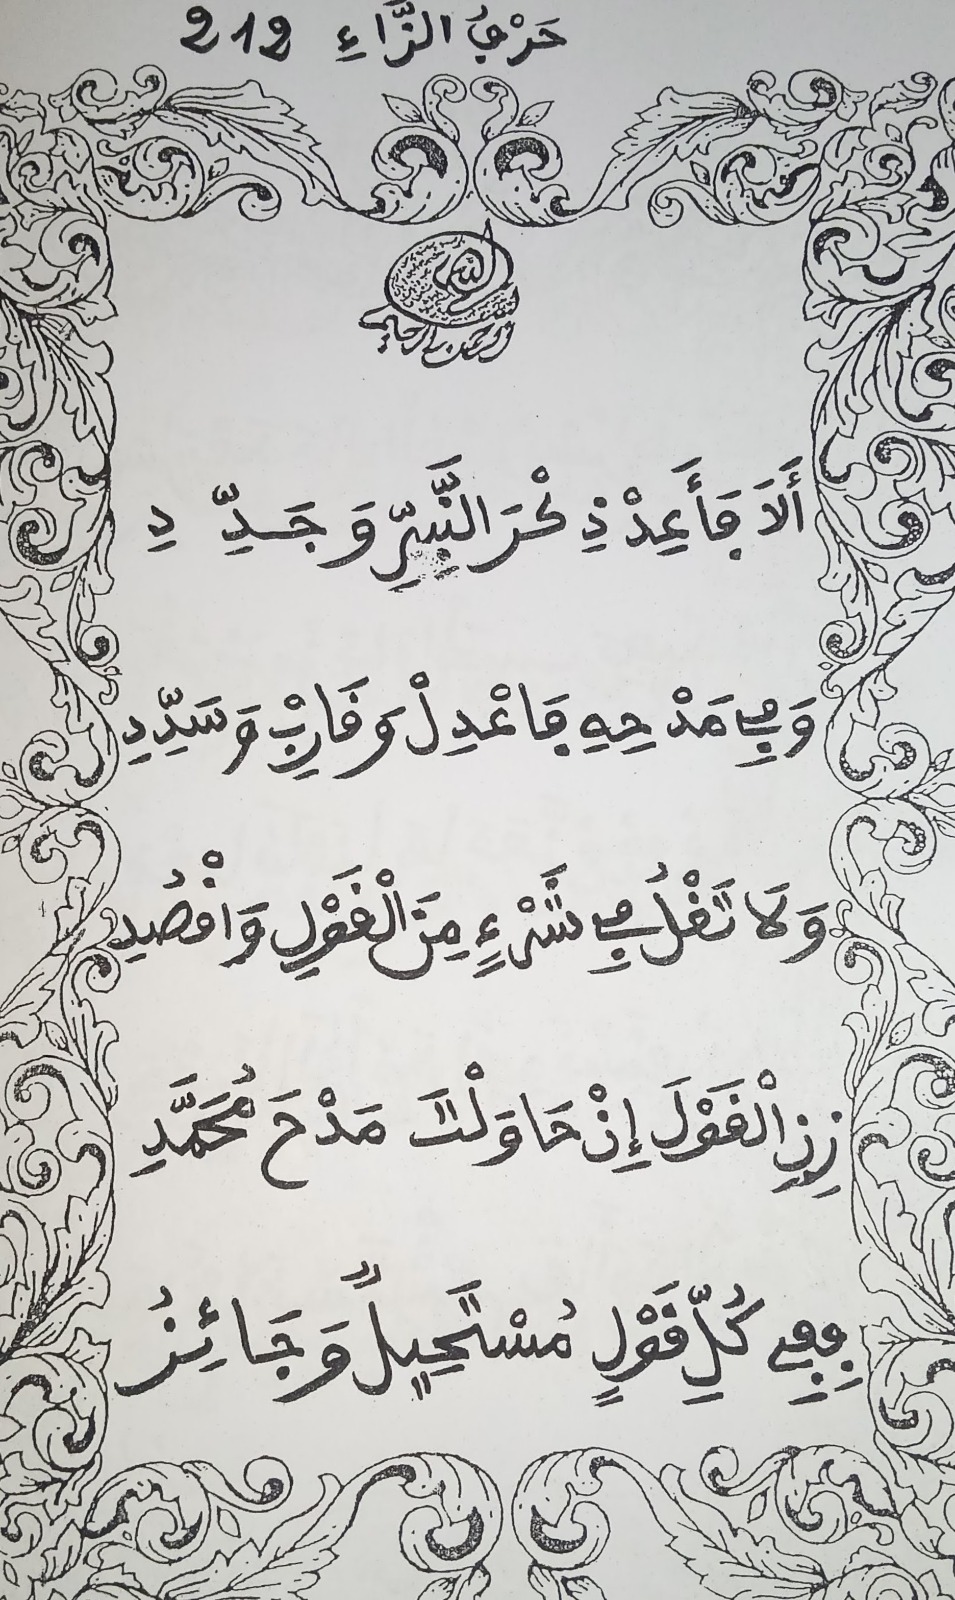 حَرْفُ الزَّاءِ 212
بسم الله الرحمن الرحيم
أَلَا فَأَعِدْ ذِكْرَ النَّبِيِّ وَجَدِّدِ
وَفِي مَدْحِهِ فَاعْدِلْ وَقَارِبْ وَسَدِّدِ
وَلَا تَغْلُ فِي شَيْءٍ مِنَ الْقَوْلِ وَاقْصُدِ
زِنِ الْقَوْلَ إِنْ حَاوَلْتَ مَدْحَ مُحَمَّدِ
فَفِي كُلِّ قَوْلٍ مُسْتَحِيلٌ وَجَائِزُ